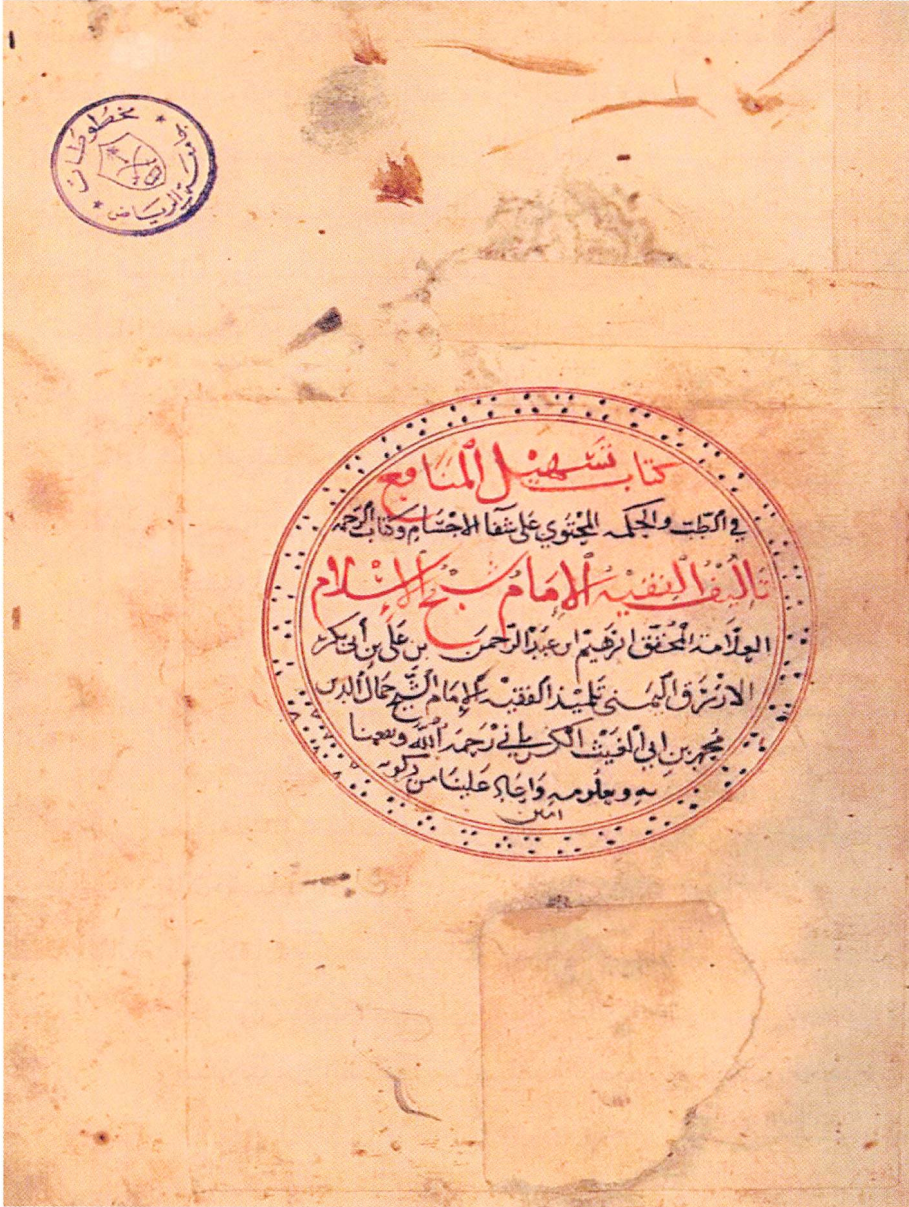 مخطوطات
الرياض
كتاب تسهيل المنافع
في الطب والحكمه المحتوي على شفا الاجسام وكتاب الرحمه
تاليف الفقيه الإمام شيخ الإسلام
العلامة المحقق ابرهيم ابن عبد الرحمن بن علي بن أبي بكر
الازرق اليمني تلميذ الفقيه الإمام الشيخ جمال الدين
محمد بن ابي الغيث الكمراني رحمه الله ونفعنا
به وبعلومه علينا من
امين